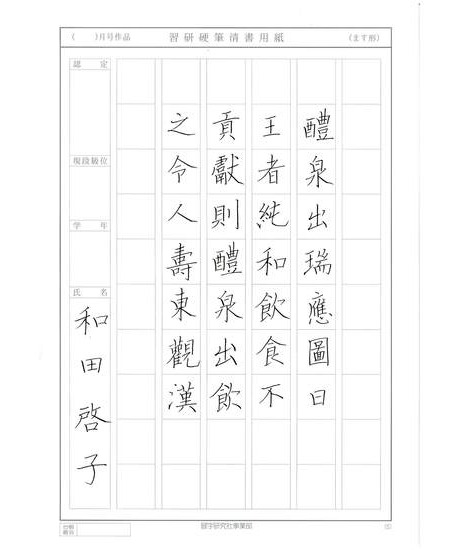 (　)月号作品
習研硬筆清書用紙
(ます形)
醴泉出瑞應圖日
王者純和飲食不
貢獻則醴泉出飲
之令人壽東觀漢
認定
現段級位
学年
氏名
和田啓子
習字研究社事業部